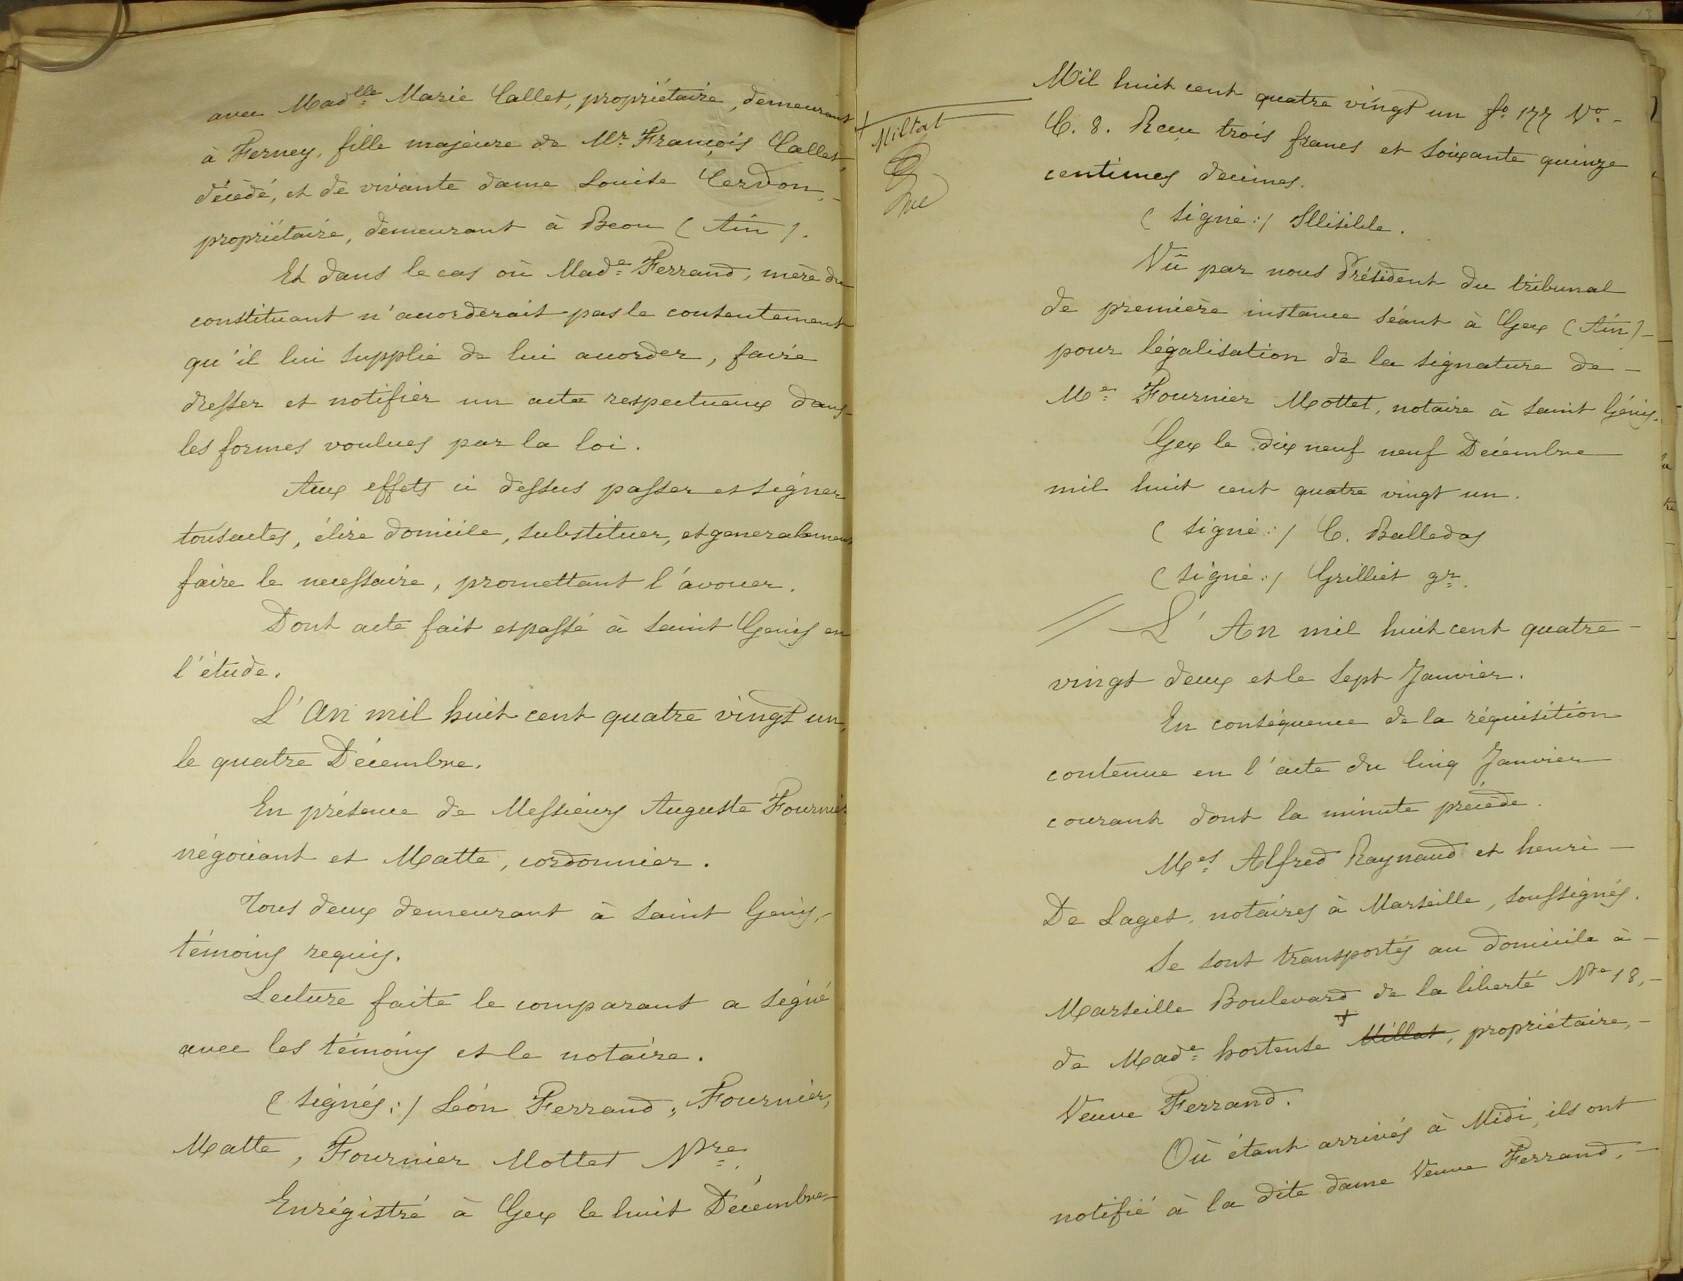 avec Mad^lle Marie Callet, propriétaire, demeurant
à Ferney, fille majeure de Mr François Callet,
décédé, et de vivante dame Louise Cerdon, -
propriétaire, demeurant à Beon (Ain).
Et dans le cas où Made Ferrand, mère du
constituant n'accorderait pas le consentement
qu'il lui supplie de lui accorder, faire
dresser et notifier un acte respectueux dans
les formes voulues par la loi.
Aux effets ci dessus passer et signer
tous actes, élire domicile, substituer, et generalement
faire le necessaire, promettant l'avouer.
Dont acte fait et passé à Saint Genis en
l'étude.
L'An mil huit cent quatre vingt un,
le quatre Décembre.
En présence de Messieurs Auguste Fournier
négociant et Matte, cordonnier.
Tous deux demeurant à Saint Genis, -
témoins requis.
Lecture faite le comparant a signé
avec les témoins et le notaire.
(signés:) Léon Ferrand, Fournier,
Matte, Fournier Mottet Nre.
Enrégistré à Gex le huit Décembre
+ Miltat
Mil huit cent quatre vingt un fo 177 Vo -
C. 8. Reçu trois francs et soixante quinze
centimes decimes.
(signé:) Illisible.
Vû par nous Président du tribunal
de première instance séant à Gex (Ain) -
pour légalisation de la signature de -
Me Fournier Mottet, notaire à Saint Génis -
Gex le dix neuf neuf Décembre
mil huit cent quatre vingt un.
(signé:) C. Balledas
(signé:) Grilliet gr.
// L'An mil huit cent quatre -
vingt deux et le sept Janvier.
En conséquence de la réquisition
contenue en l'acte du Cinq Janvier
courant dont la minute précède.
Mes Alfred Raynaud et henri -
De Laget, notaires à Marseille, soussignés.
Se sont transportés au domicile à -
Marseille Boulevard de la liberté No 18, -
de Made hortense + Millat, propriétaire, -
Veuve Ferrand.
Où étant arrivés à Midi, ils ont
notifié à la dite dame Veuve Ferrand, -